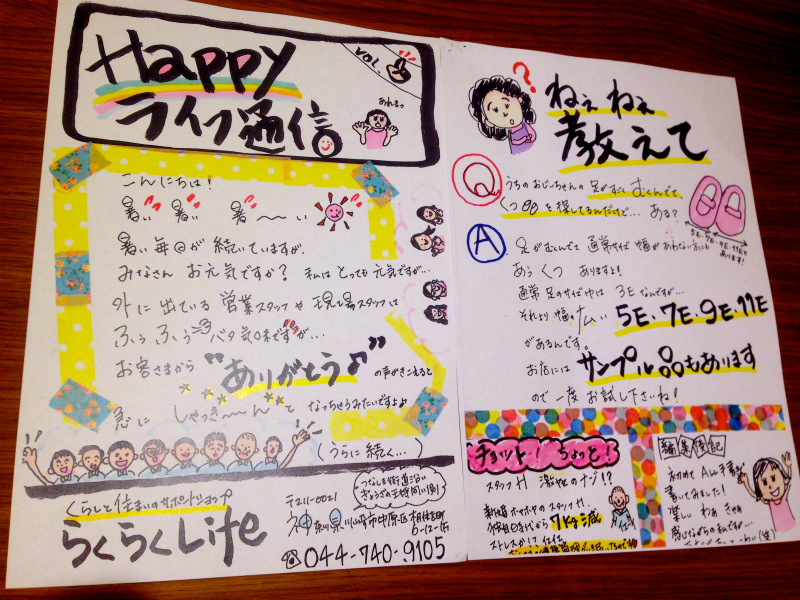 Happy
ライフ通信
VOL.
あれまっ
こんにちは!
暑い 暑い 暑〜〜い
暑い毎日が続いていますが、
みなさん お元気ですか? 私はとっても元気ですが…
外に出ている営業スタッフや現場スタッフは
ふぅ ふぅ バタ気味ですが…
お客さまから "ありがとう♪" の声がきこえると
急に しゃっき〜〜ん と なっちゃうみたいですよ♪
うらに続く…
くらしと住まいのサポートショップ
らくらくLife
つなしま街道沿い
ぎょうざの王将向い側
〒211-0021
神奈川県川崎市中原区木月住吉町
☎044-740-9105
ねぇ ねぇ
教えて
?
Q うちのおじいちゃんの足がすごくむくんでて
くつを探してるんだけど… ある?
5E・7E・9E・11Eと
あります!
A 足がむくんでて通常サイズ幅があわない方にも
あう くつ ありますよ!
通常足のサイズ巾は 3Eなんですが…
それより幅の広い 5E・7E・9E・11E
があるんです。
お店には サンプル品もあります
ので一度お試し下さいね!
チョット! ちょっと!
スタッフH 激やせのナゾ!?
スタッフH.
7kg減
ストレスか!?
編集後記
初めて
書してみました!
楽しい わぁ きゃぁ